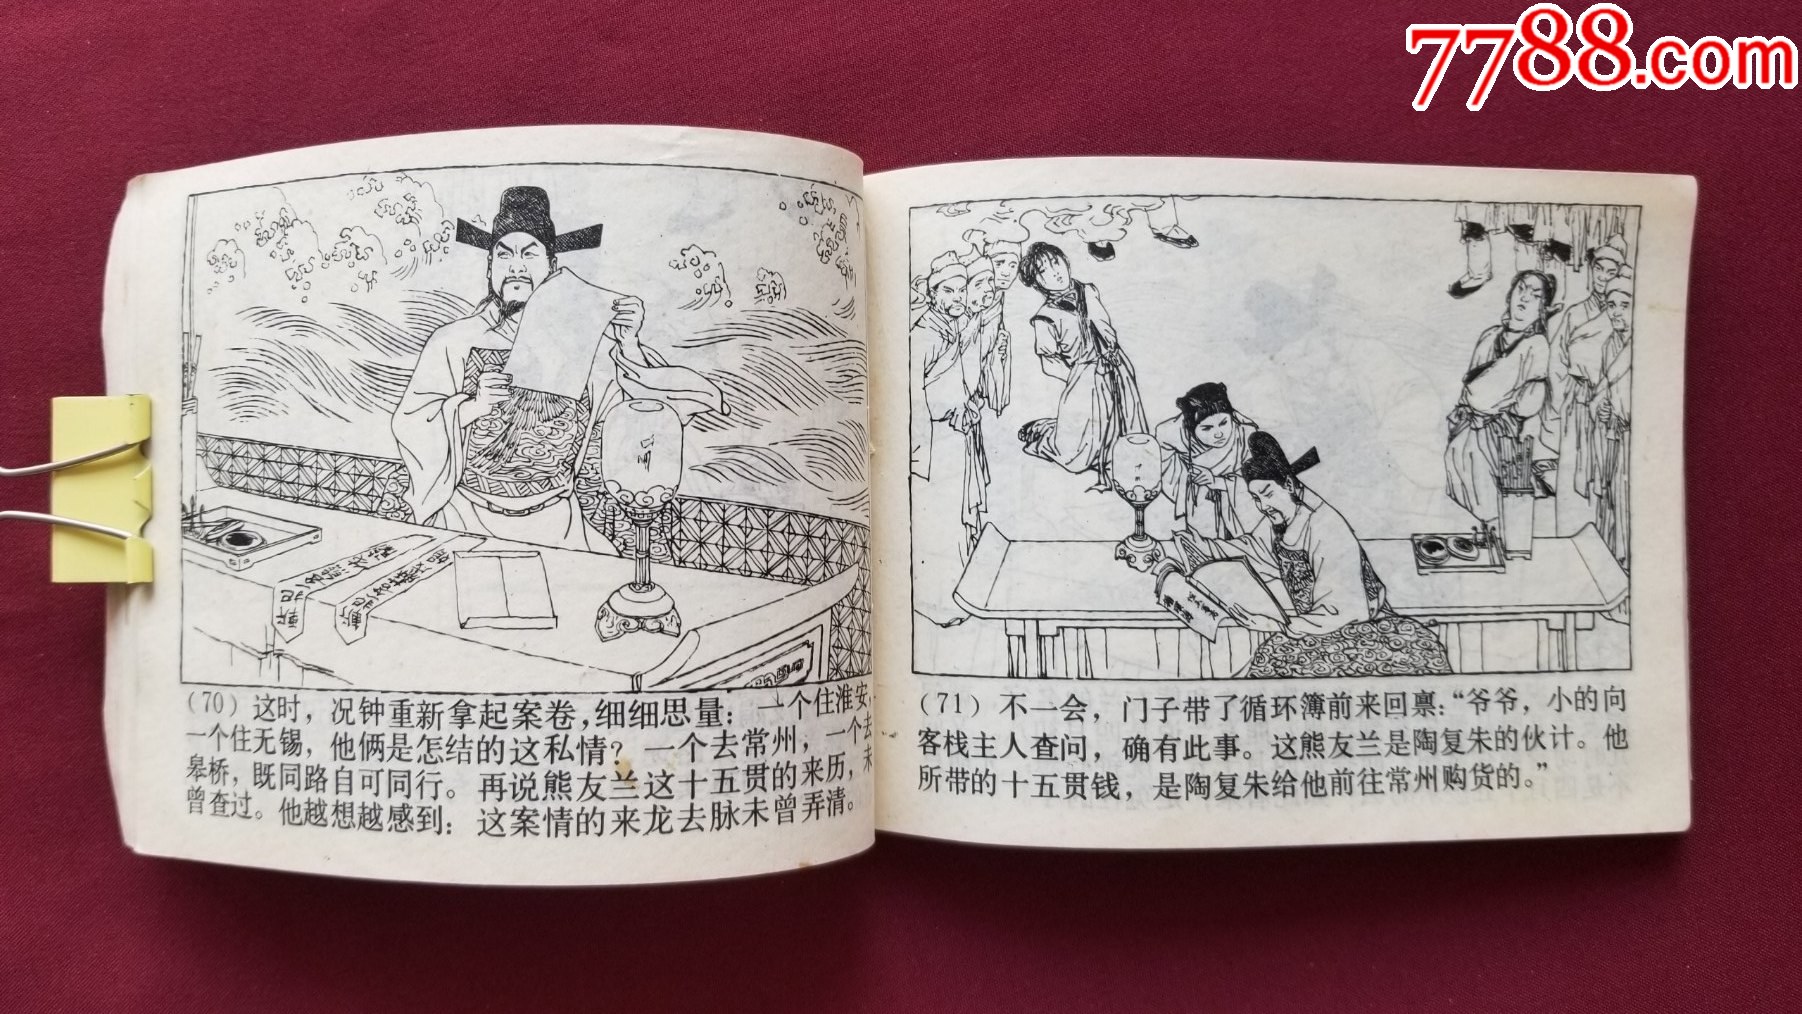 7788.com
(70) 这时，况钟重新拿起案卷，细细思量：一个住淮安，
一个住无锡，他俩是怎结的这私情？一个去常州，一个去
皋桥，既同路自可同行。再说熊友兰这十五贯的来历，未
曾查过。他越想越感到：这案情的来龙去脉未曾弄清。
(71) 不一会，门子带了循环簿前来回禀：“爷爷，小的向
客栈主人查问，确有此事。这熊友兰是陶复朱的伙计。他
所带的十五贯钱，是陶复朱给他前往常州购货的。”